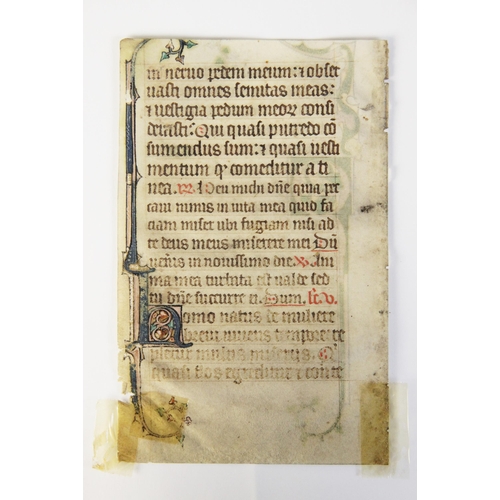 in neruo pedem meum: ⁊ obser
uasti omnes semitas meas:
⁊ uestigia pedum meoꝝ consi
derasti: Qui quasi putredo cō
sumendus sum: ⁊ quasi uesti
mentum qꝫ comeditur a ti
nea. R. Heu michi dñe quia pec
caui nimis in uita mea quid fa
ciam miser ubi fugiam nisi ad
te deus meus miserere mei Dū
ueneris in nouissimo die. V. Ani
ma mea turbata est ualde sed
tu dñe succurre ei. Dum. lc̄. v.
Homo natus de muliere
breui uiuens tempore re
pletur multis miseriis. Q
quasi flos egreditur ⁊ conte